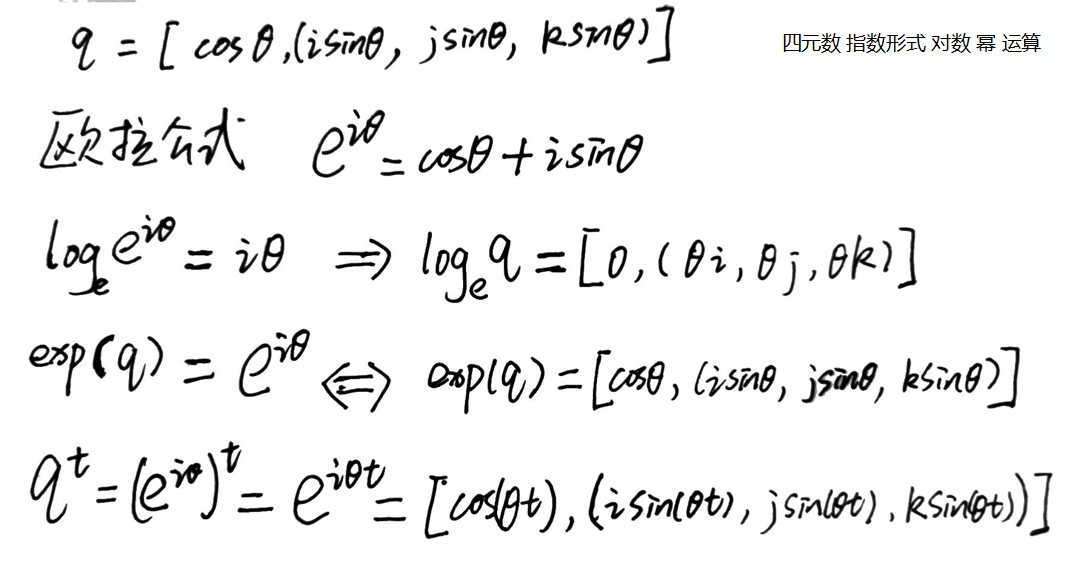 q = [ cosθ,(isinθ, jsinθ, ksinθ)]
四元数 指数形式 对数 幂 运算
欧拉公式 e^{iθ} = cosθ + isinθ
log_e e^{iθ} = iθ ⇒ log_e q = [0, (θi, θj, θk)]
exp(q) = e^{iθ} ⇔ exp(q) = [cosθ, (isinθ, jsinθ, ksinθ)]
q^t = (e^{iθ})^t = e^{iθt} = [cos(θt), (isin(θt), jsin(θt), ksin(θt))]